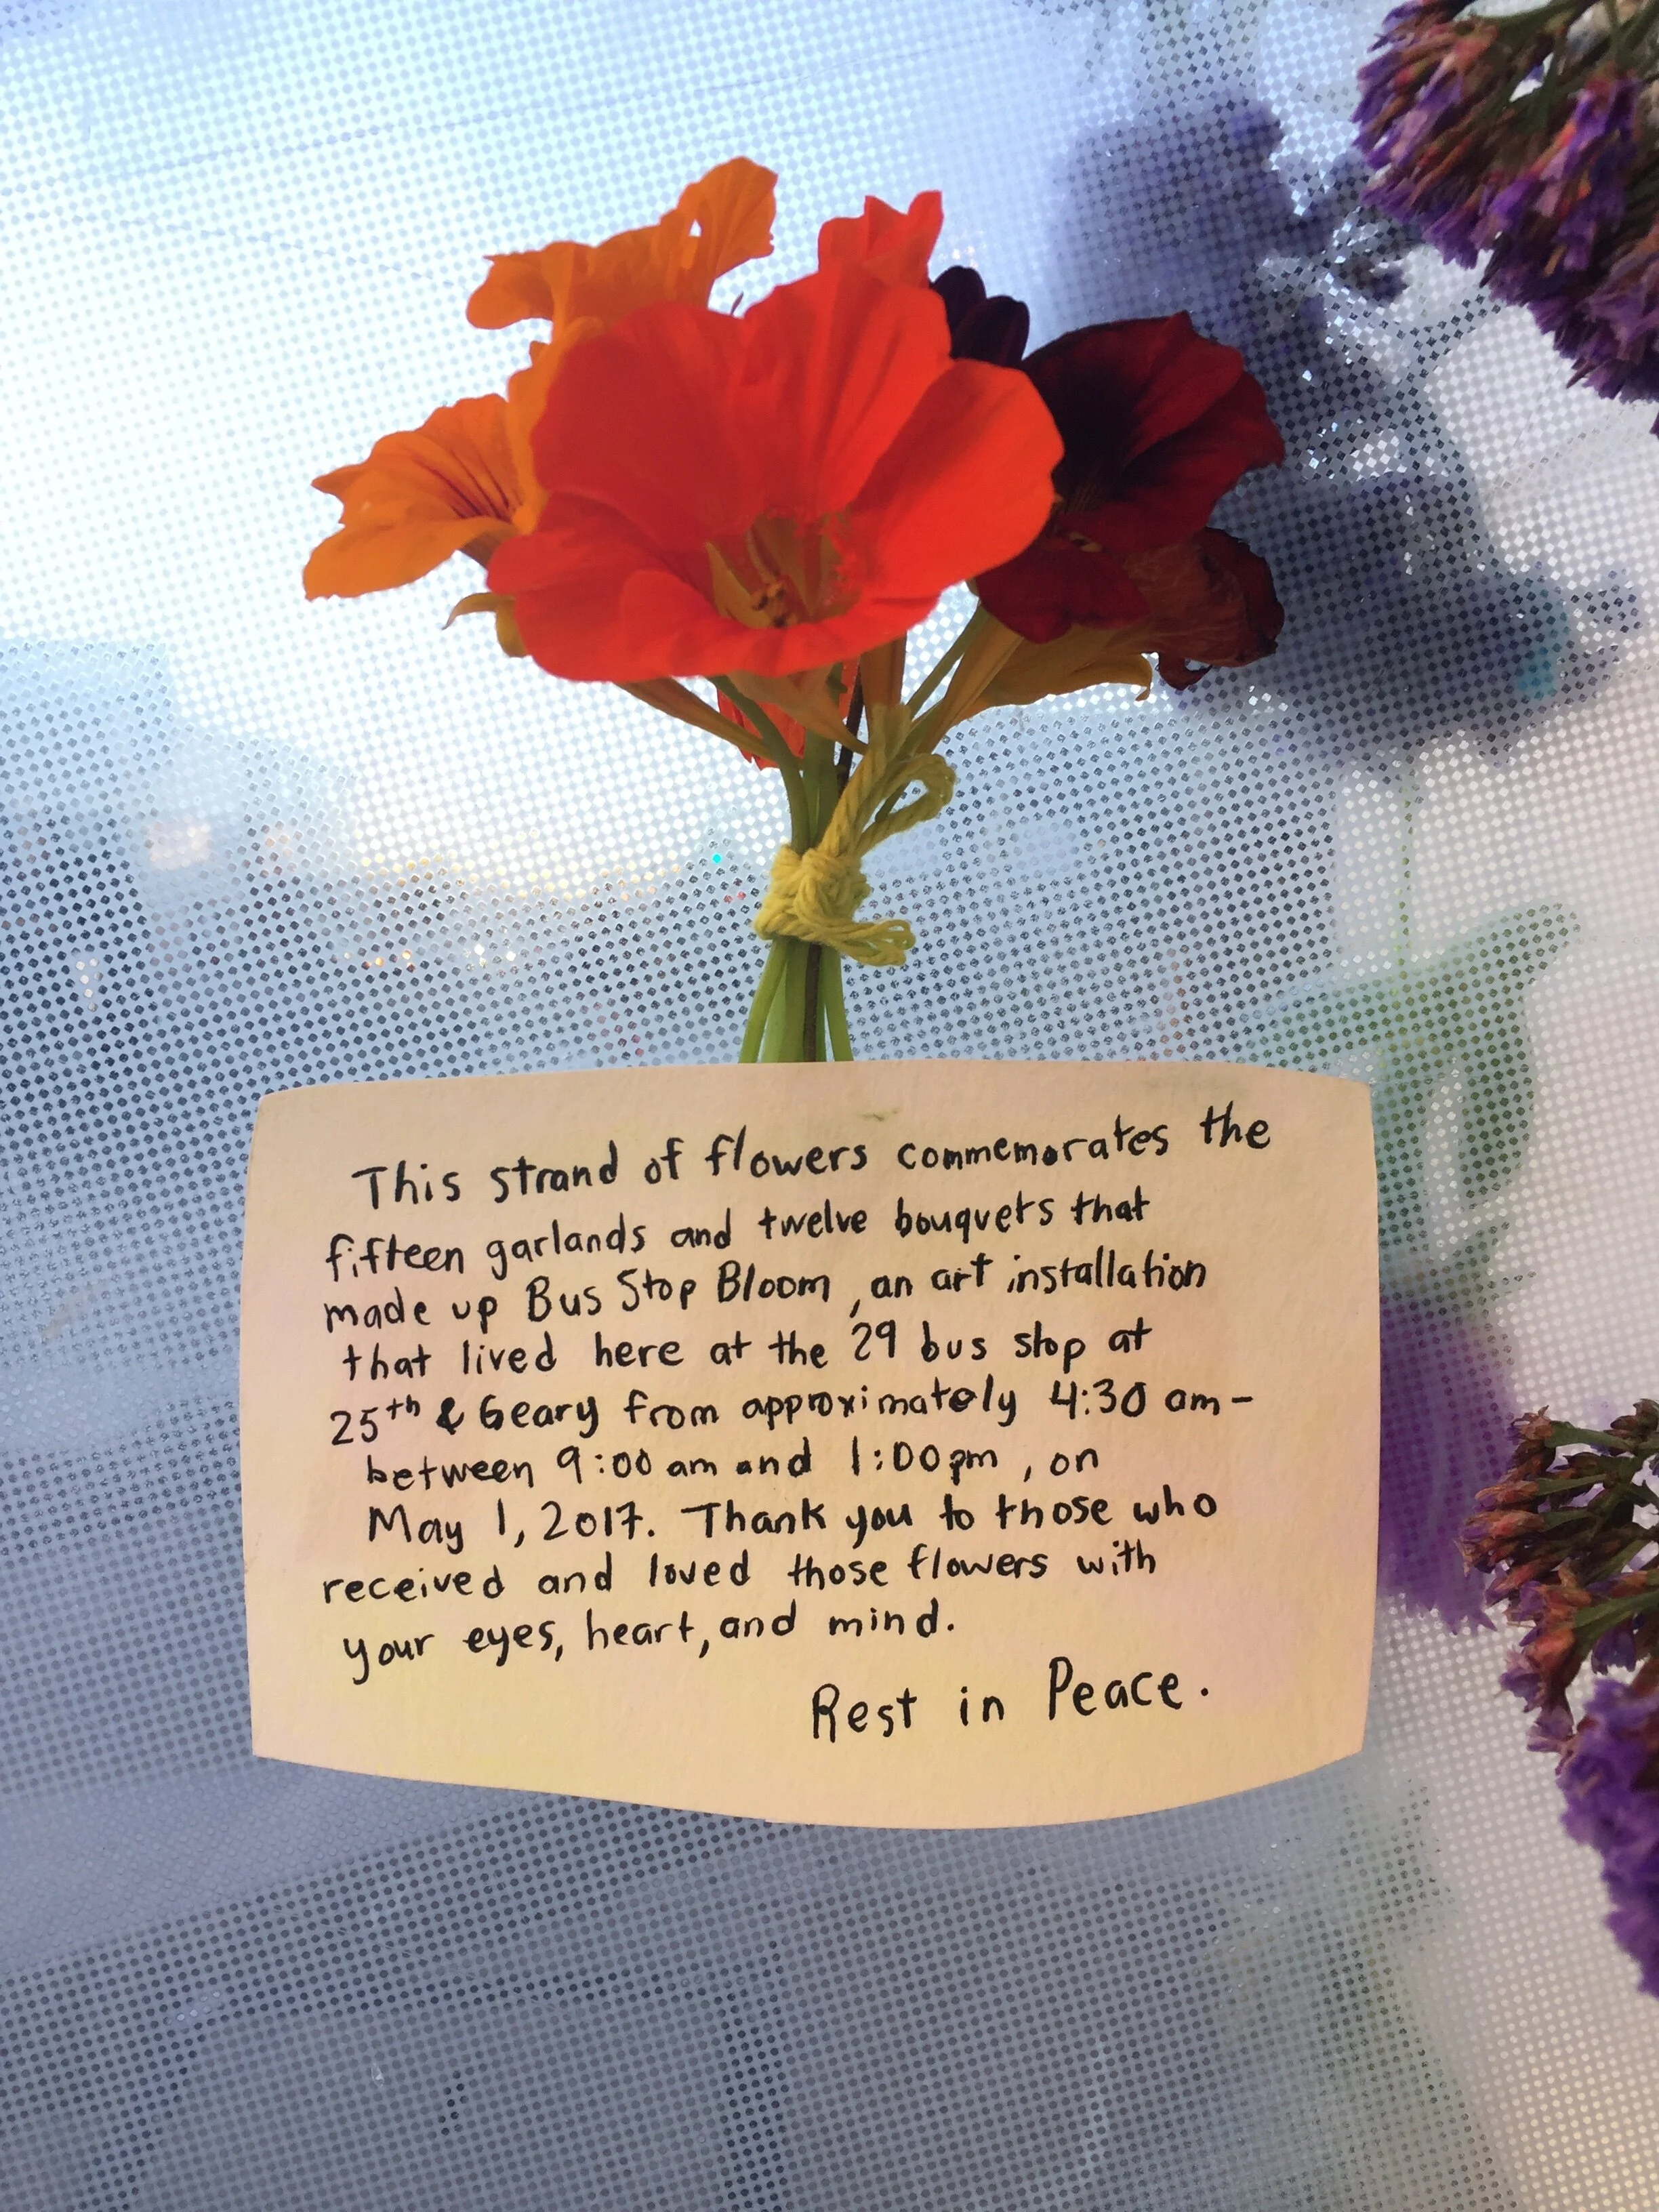 This strand of flowers commemorates the
fifteen garlands and twelve bouquets that
made up Bus Stop Bloom, an art installation
that lived here at the 29 bus stop at
25th & Geary from approximately 4:30 am-
between 9:00 am and 1:00pm, on
May 1, 2017. Thank you to those who
received and loved those flowers with
your eyes, heart, and mind.
Rest in Peace.